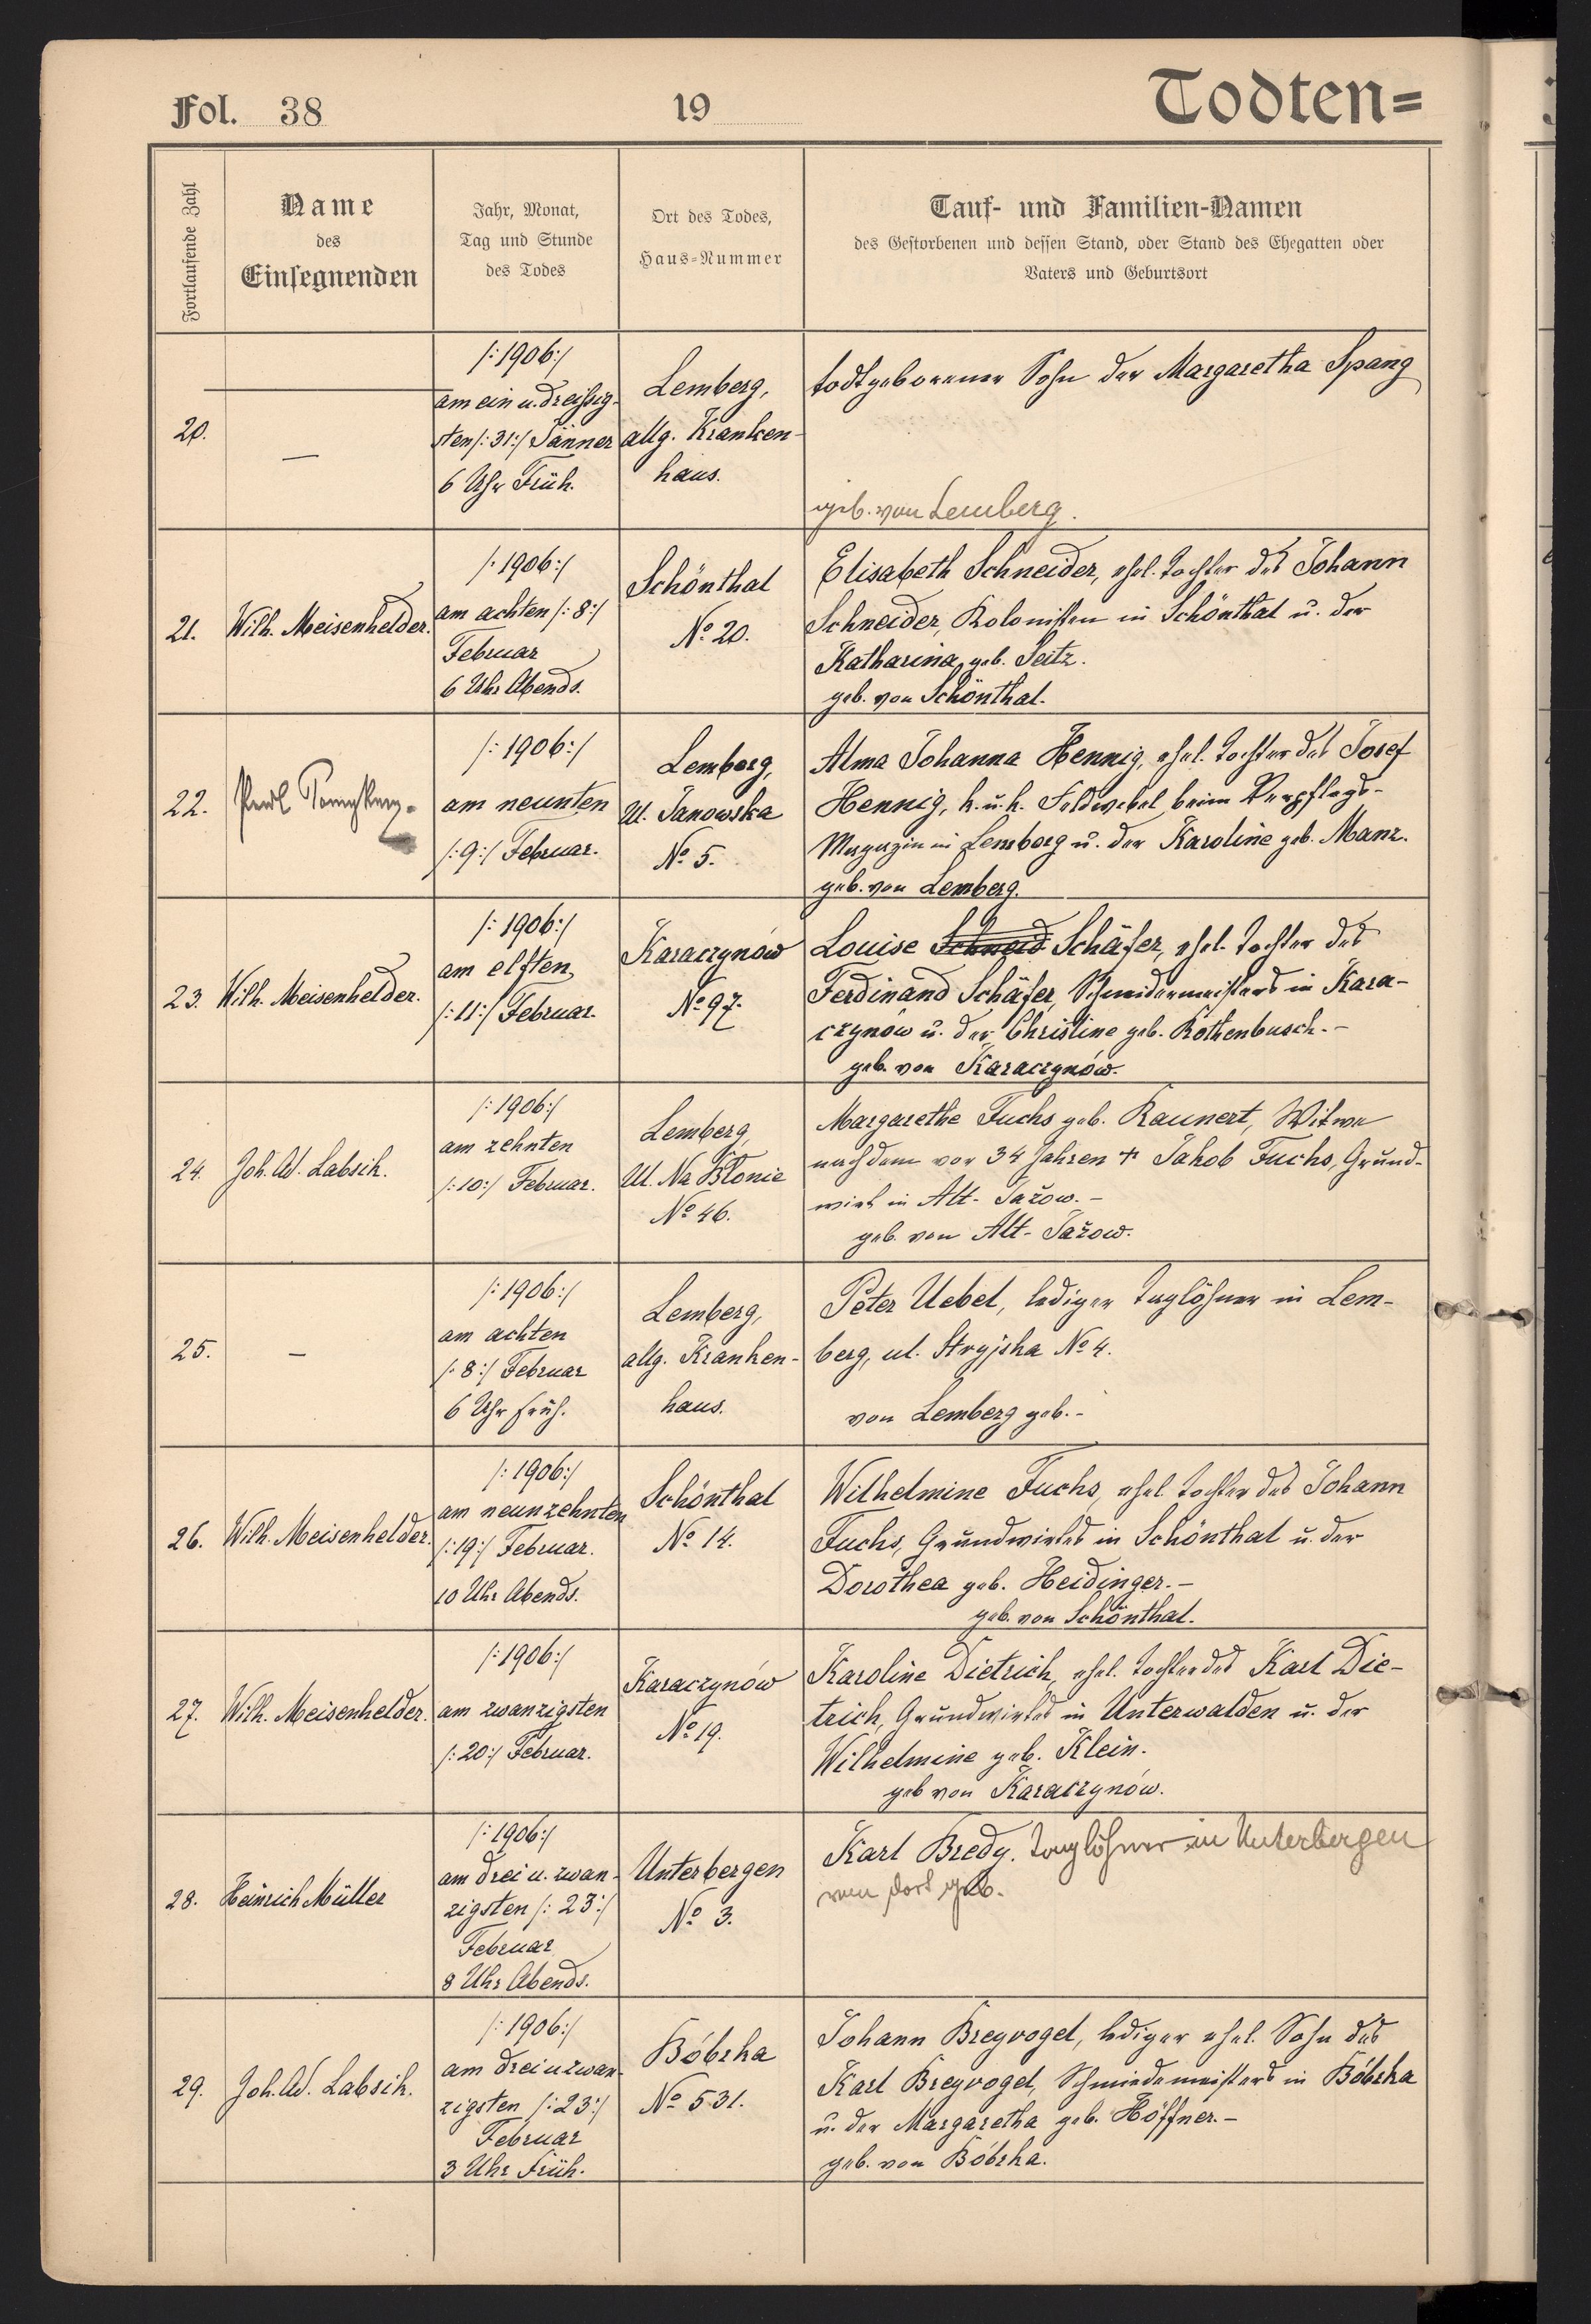 Fol. 38
19
Todten=
Fortlaufende Zahl
Name
des
Einsegnenden
Jahr, Monat,
Tag und Stunde
des Todes
Ort des Todes,
Haus-Nummer
Tauf- und Familien-Namen
des Gestorbenen und dessen Stand, oder Stand des Ehegatten oder
Vaters und Geburtsort
20.
—
/:1906:/
am ein u. dreißig-
sten /:31:/ Jänner
6 Uhr Früh.
Lemberg,
allg. Kranken-
haus.
todtgeborener Sohn der Margaretha Spang
geb. von Lemberg.
21.
Wilh. Meisenhelder.
/:1906:/
am achten /:8:/
Februar
6 Uhr Abends.
Schönthal
No 20.
Elisabeth Schneider, ehel. Tochter des Johann
Schneider, Kolonisten in Schönthal u. der
Katharina, geb. Seitz.
geb. von Schönthal.
22.
/:1906:/
am neunten
/:9:/ Februar.
Lemberg,
Ul. Janowska
No 5.
Alma Johanna Hennig, ehel. Tochter des Josef
Hennig, k. u. k. Feldwebel beim Verpflegs-
Magazin in Lemberg u. der Karoline geb. Manz.
geb. von Lemberg.
23.
Wilh. Meisenhelder.
/:1906:/
am elften
/:11:/ Februar.
Karaczynów
No 97.
Louise Schneid Schäfer, ehel. Tochter des
Ferdinand Schäfer, Schneidermeisters in Kara-
czynów u. der Christine geb. Rothenbusch. -
geb. von Karaczynów.
24.
Joh. Ad. Labsik.
/:1906:/
am zehnten
/:10:/ Februar.
Lemberg,
Ul. Na Błonie
No 46.
Margarethe Fuchs geb. Kaunert, Witwe
nach dem vor 34 Jahren + Jakob Fuchs, Grund-
wirt in Alt-Jažow. -
geb. von Alt-Jažow.
25.
—
/:1906:/
am achten
/:8:/ Februar
6 Uhr früh.
Lemberg,
allg. Kranken-
haus.
Peter Uebel, lediger Taglöhner in Lem-
berg, ul. Stryjska No 4.
von Lemberg geb. -
26.
Wilh. Meisenhelder.
/:1906:/
am neunzehnten
/:19:/ Februar.
10 Uhr Abends.
Schönthal
No 14.
Wilhelmine Fuchs, ehel. Tochter des Johann
Fuchs, Grundwirtes in Schönthal u. der
Dorothea geb. Heidinger. -
geb. von Schönthal.
27.
Wilh. Meisenhelder.
/:1906:/
am zwanzigsten
/:20:/ Februar.
Karaczynów
No 19.
Karoline Dietrich, ehel. Tochter des Karl Die-
trich, Grundwirtes in Unterwalden u. der
Wilhelmine geb. Klein.
geb von Karaczynów.
28.
Heinrich Müller
/:1906:/
am drei u. zwan-
zigsten /:23:/
Februar
8 Uhr Abends.
Unterbergen
No 3.
Karl Bredy. Taglöhner in Unterbergen
von dort geb.
29.
Joh. Ad. Labsik.
/:1906:/
am drei u zwan-
zigsten /:23:/
Februar
3 Uhr Früh.
Bóbrka
No 531.
Johann Breyvogel, lediger ehel. Sohn des
Karl Breyvogel, Schmiedemeisters in Bóbrka
u. der Margaretha geb. Höffner. -
geb. von Bóbrka.